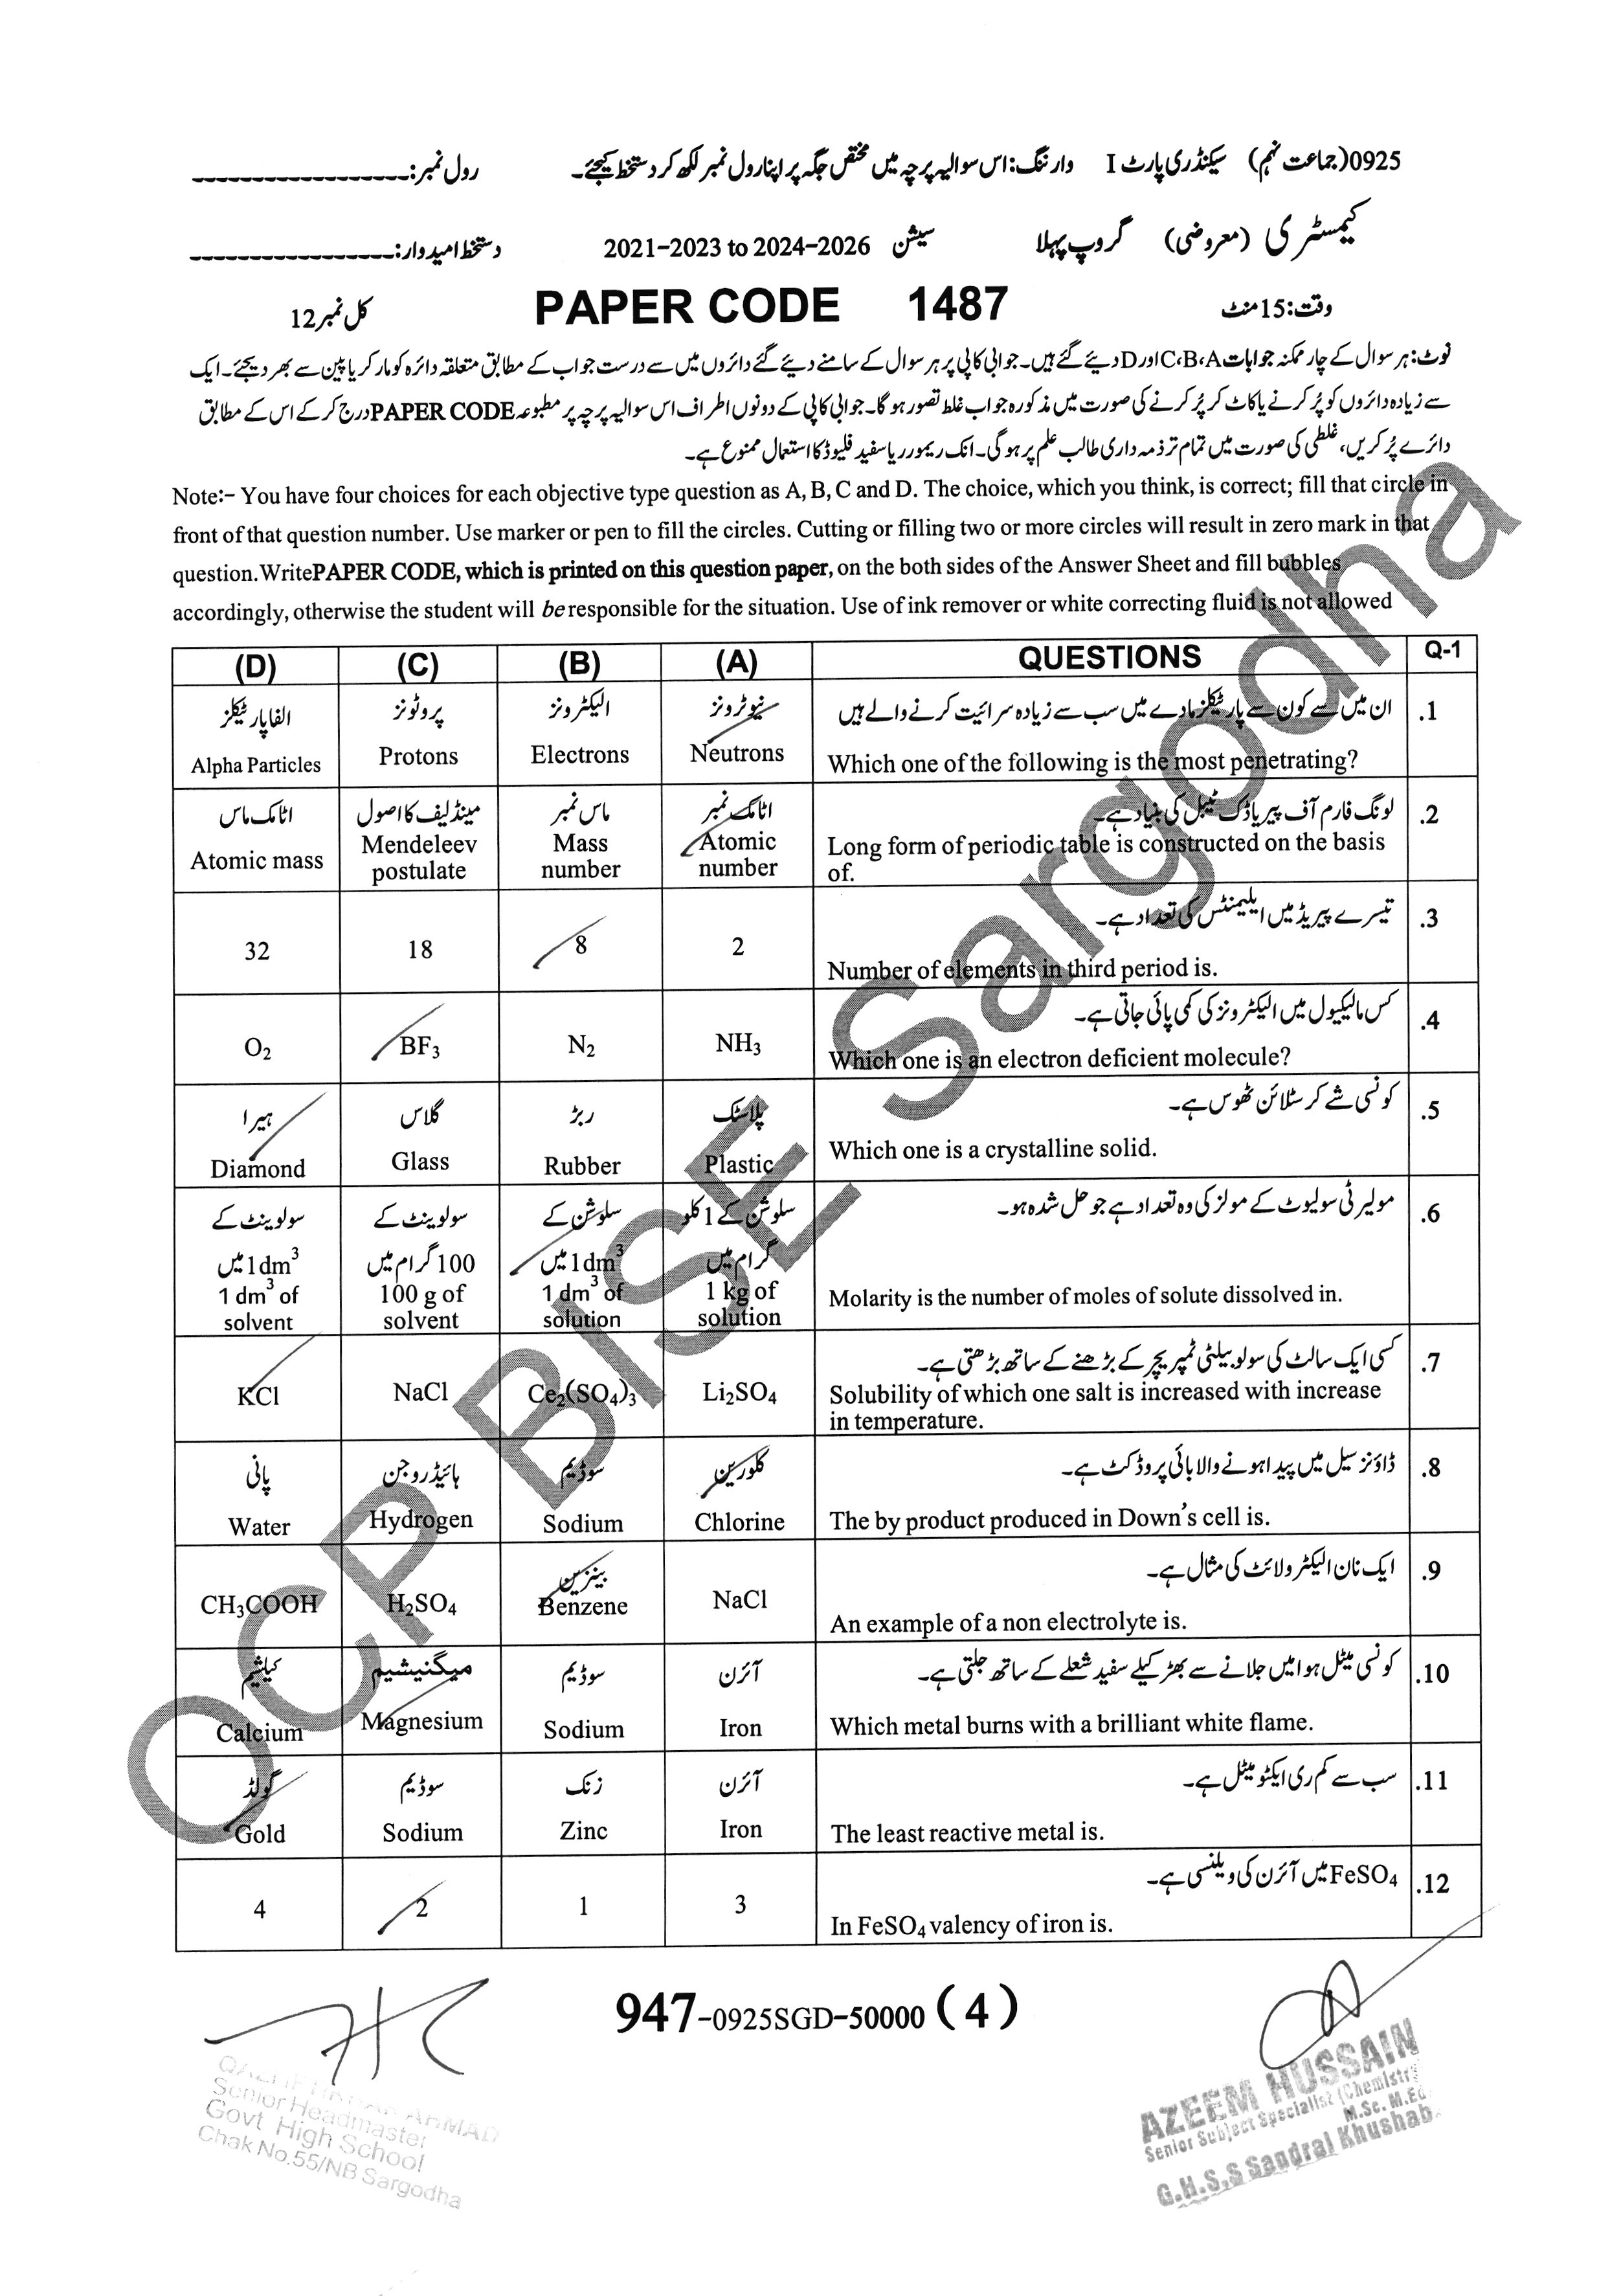 0925(جماعت نہم) سیکنڈری پارٹ I وارننگ: اس سوالیہ پرچہ میں مختص جگہ پر اپنا رول نمبر لکھ کر دستخط کیجئے۔ رول نمبر: _________________
کیمسٹری (معروضی) گروپ پہلا سیشن 2021-2023 to 2024-2026 دستخط امیدوار: _________________
وقت: 15 منٹ PAPER CODE 1487 کل نمبر 12
نوٹ: ہر سوال کے چار ممکنہ جوابات A، B، C اور D دیئے گئے ہیں۔ جوابی کاپی پر ہر سوال کے سامنے دیئے گئے دائروں میں سے درست جواب کے مطابق متعلقہ دائرہ کو مارکر یا پین سے بھر دیجئے۔ ایک
سے زیادہ دائروں کو پُر کرنے یا کاٹ کر پُر کرنے کی صورت میں مذکورہ جواب غلط تصور ہو گا۔ جوابی کاپی کے دونوں اطراف اس سوالیہ پرچہ پر مطبوعہ PAPER CODE درج کر کے اس کے مطابق
دائرے پُر کریں، غلطی کی صورت میں تمام تر ذمہ داری طالب علم پر ہو گی۔ انک ریمور ریا سفید فلیوڈ کا استعمال ممنوع ہے۔
Note:- You have four choices for each objective type question as A, B, C and D. The choice, which you think, is correct; fill that circle in
front of that question number. Use marker or pen to fill the circles. Cutting or filling two or more circles will result in zero mark in that
question.WritePAPER CODE, which is printed on this question paper, on the both sides of the Answer Sheet and fill bubbles
accordingly, otherwise the student will be responsible for the situation. Use of ink remover or white correcting fluid is not allowed
(D) (C) (B) (A) QUESTIONS Q-1
ان میں سے کون سے پارٹیکلز مادے میں سب سے زیادہ سرائیت کرنے والے ہیں .1
الفا پارٹیکلز پروٹونز الیکٹرونز نیوٹرونز
Alpha Particles Protons Electrons Neutrons Which one of the following is the most penetrating?
لونگ فارم آف پیریاڈک ٹیبل کی بنیاد ہے۔ .2
اٹامک ماس مینڈلیف کا اصول ماس نمبر اٹامک نمبر
Atomic mass Mendeleev postulate Mass number Atomic number Long form of periodic table is constructed on the basis
of.
تیسرے پیریڈ میں ایلیمنٹس کی تعداد ہے۔ .3
32 18 8 2
Number of elements in third period is.
کس مالیکیول میں الیکٹرونز کی کمی پائی جاتی ہے۔ .4
O2 BF3 N2 NH3
Which one is an electron deficient molecule?
کونسی شے کرسٹلائن ٹھوس ہے۔ .5
ہیرا گلاس ربڑ پلاسٹک
Diamond Glass Rubber Plastic Which one is a crystalline solid.
مولیرٹی سولیوٹ کے مولز کی وہ تعداد ہے جو حل شدہ ہو۔ .6
سولوینٹ کے 1dm3 میں سولوینٹ کے 100 گرام میں سلوشن کے 1dm3 میں سلوشن کے 1 کلو گرام میں
1 dm3 of solvent 100 g of solvent 1 dm3 of solution 1 kg of solution Molarity is the number of moles of solute dissolved in.
کسی ایک سالٹ کی سولوبیلٹی ٹمپریچر کے بڑھنے کے ساتھ بڑھتی ہے۔ .7
KCl NaCl Ce2(SO4)3 Li2SO4 Solubility of which one salt is increased with increase
in temperature.
ڈاؤنز سیل میں پیدا ہونے والا بائی پروڈکٹ ہے۔ .8
پانی ہائیڈروجن سوڈیم کلورین
Water Hydrogen Sodium Chlorine The by product produced in Down's cell is.
ایک نان الیکٹرولائٹ کی مثال ہے۔ .9
بینزین
CH3COOH H2SO4 Benzene NaCl
An example of a non electrolyte is.
کونسی میٹل ہوا میں جلانے سے بھڑکیلے سفید شعلے کے ساتھ جلتی ہے۔ .10
کیلشیم میگنیشیم سوڈیم آئرن
Calcium Magnesium Sodium Iron Which metal burns with a brilliant white flame.
سب سے کم ری ایکٹو میٹل ہے۔ .11
گولڈ سوڈیم زنک آئرن
Gold Sodium Zinc Iron The least reactive metal is.
FeSO4 میں آئرن کی ویلنسی ہے۔ .12
4 2 1 3
In FeSO4 valency of iron is.
947-0925SGD-50000 (4)
Senior Headmaster
Govt High School
Chak No.55/NB Sargodha
AZEEM HUSSAIN
Senior Subject Specialist (Chemistry)
M.Sc. M.Ed
G.H.S.S Sandral Khushab
OCP BISE Sargodha